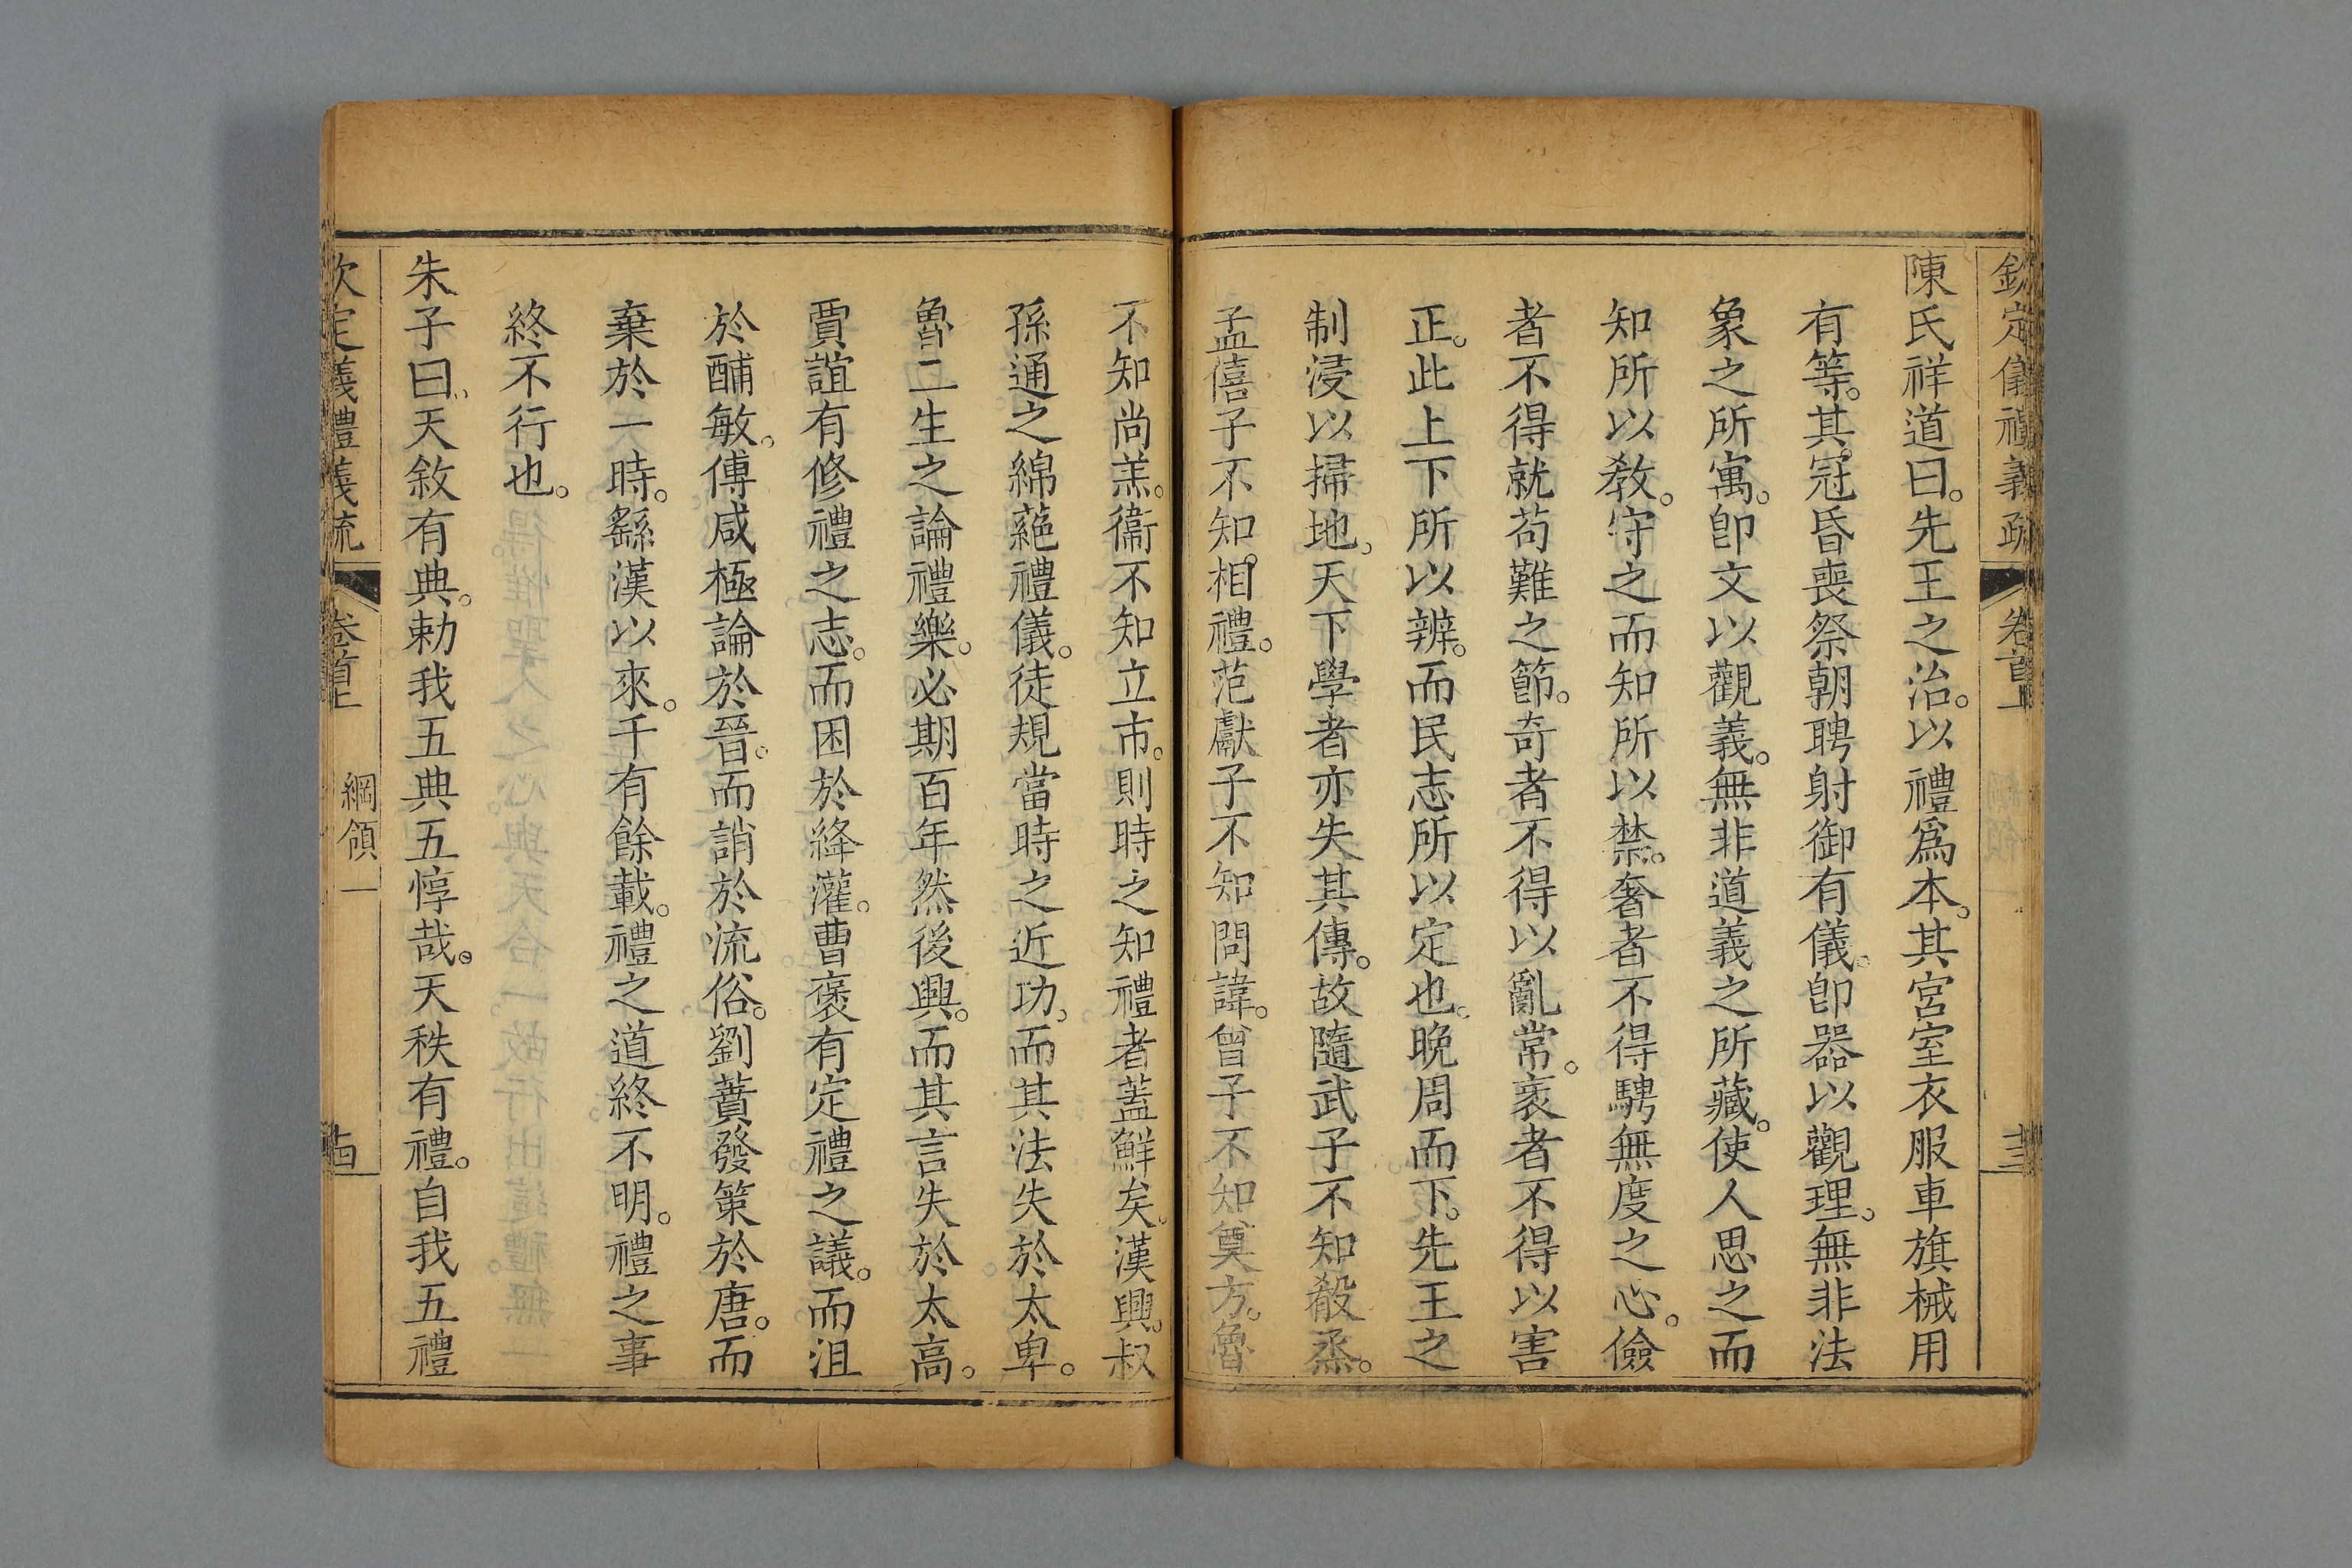 欽定儀禮義疏 卷首上 十三
陳氏祥道曰。先王之治。以禮爲本。其宮室衣服車旗械用
有等。其冠昏喪祭朝聘射御有儀。卽器以觀理。無非法
象之所寓。卽文以觀義。無非道義之所藏。使人思之而
知所以教。守之而知所以禁。奢者不得騁無度之心。儉
者不得就苟難之節。奇者不得以亂常。衺者不得以害
正。此上下所以辨。而民志所以定也。晚周而下。先王之
制浸以掃地。天下學者亦失其傳。故隨武子不知殽烝。
孟僖子不知相禮。范獻子不知問諱。曾子不知奠方。魯
不知尚羔。衞不知立市。則時之知禮者蓋鮮矣。漢興。叔
孫通之綿蕝禮儀。徒規當時之近功。而其法失於太卑。
魯二生之論禮樂。必期百年然後興。而其言失於太高。
賈誼有修禮之志。而困於絳灌。曹褒有定禮之議。而沮
於酺敏。傅咸極論於晉。而誚於流俗。劉蕡發策於唐。而
棄於一時。繇漢以來。千有餘載。禮之道終不明。禮之事
終不行也。
朱子曰。天敘有典。勅我五典五惇哉。天秩有禮。自我五禮
欽定義禮義疏 卷首上 綱領一 十四